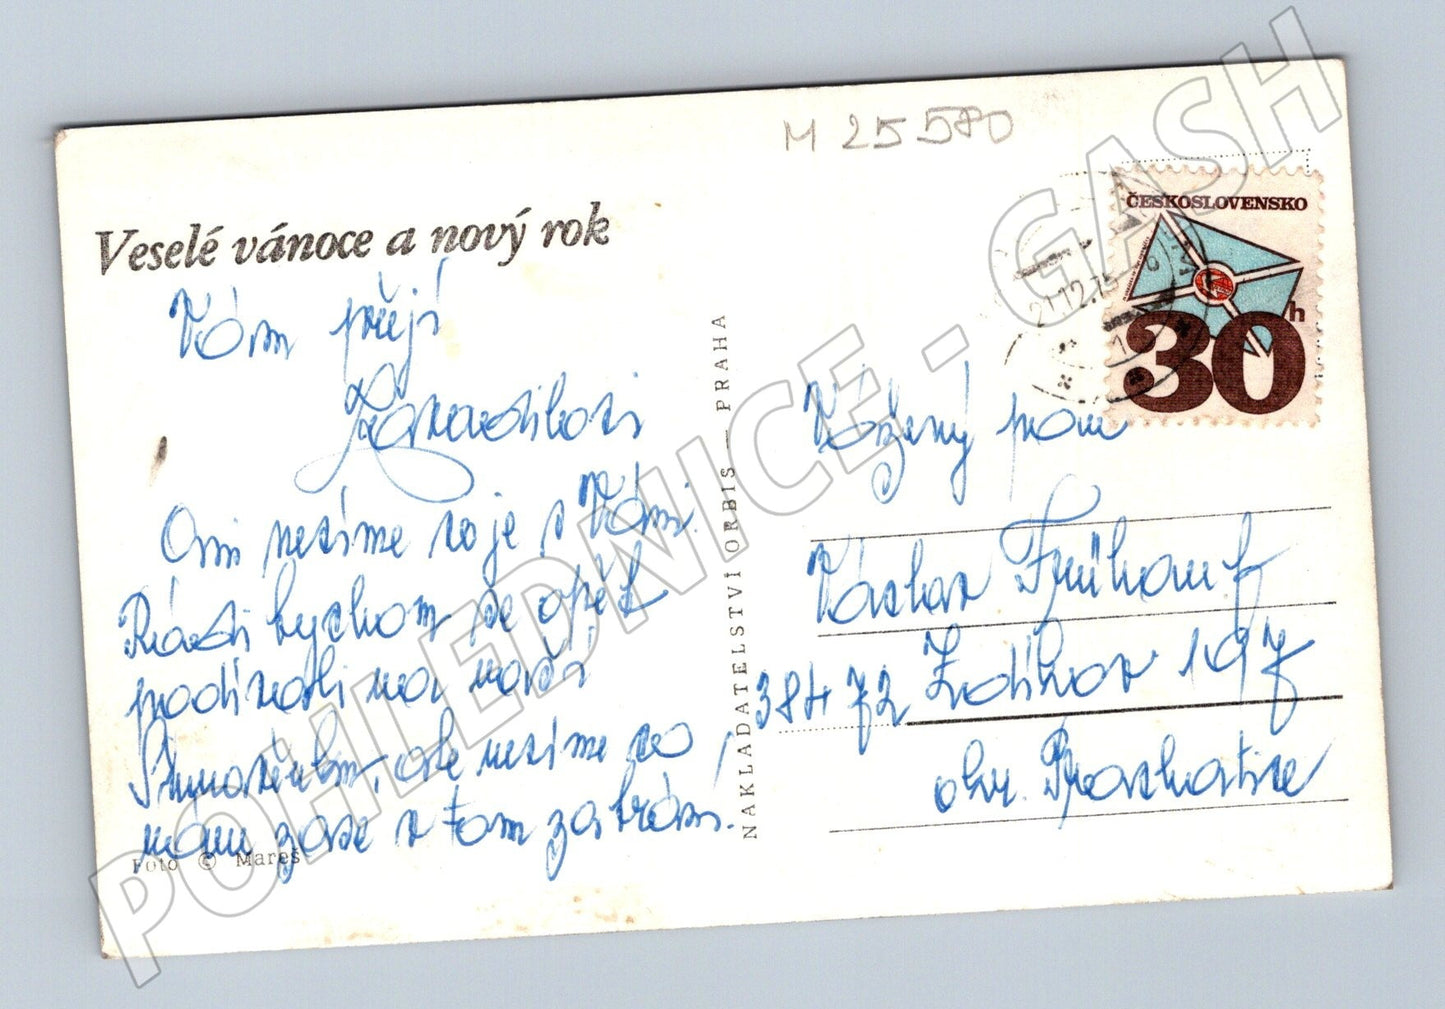 M 25580
ČESKOSLOVENSKO
30 h
21.12.75
Veselé vánoce a nový rok
Vám přejí
Zavadilovi
Ani nevíme co je s Vámi.
Rádi bychom se opět
podívali na vaši
Šumavěnku, ale nevíme co
nám zase v tom zabrání.
Foto © Mareš
NAKLADATELSTVÍ ORBIS — PRAHA
Vážený pan
Václav Frühauf
384 72 Zdíkov 197
okr. Prachatice
POHLEDNICE - GASH